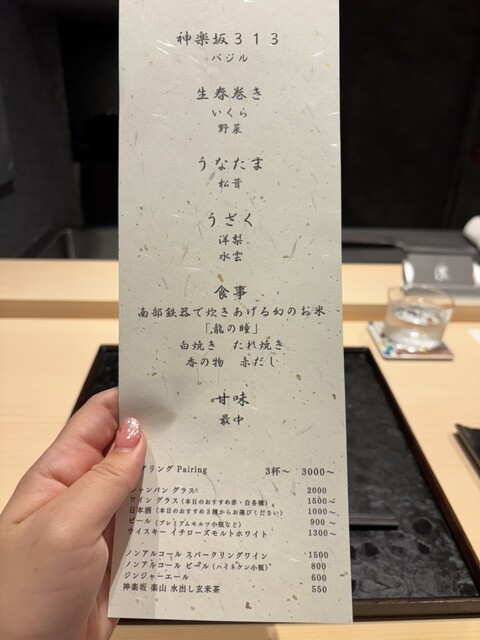 神楽坂３１３
バジル
生春巻き
いくら
野菜
うなたま
松茸
うざく
洋梨
水雲
食事
南部鉄器で炊きあげる幻のお米
「龍の瞳」
白焼き　たれ焼き
香の物　赤だし
甘味
最中
リング Pairing　3杯～　3000～
シャンパン グラス　2000
ワイン グラス（本日のおすすめ赤・白各種）　1500～
日本酒（本日のおすすめ3種からお選びください）　1000～
ビール（プレミアムモルツ小瓶など）　900～
ウイスキー イチローズモルトホワイト　1300～
ノンアルコール スパークリングワイン　1500
ノンアルコール ビール（ハイネケン小瓶）　800
ジンジャーエール　600
神楽坂 楽山 水出し玄米茶　550